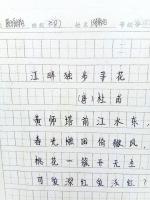 江畔独步寻花
(唐)杜甫
黄师塔前江水东,
春光懒困倚微风。
桃花一簇开无主,
可爱深红爱浅红?